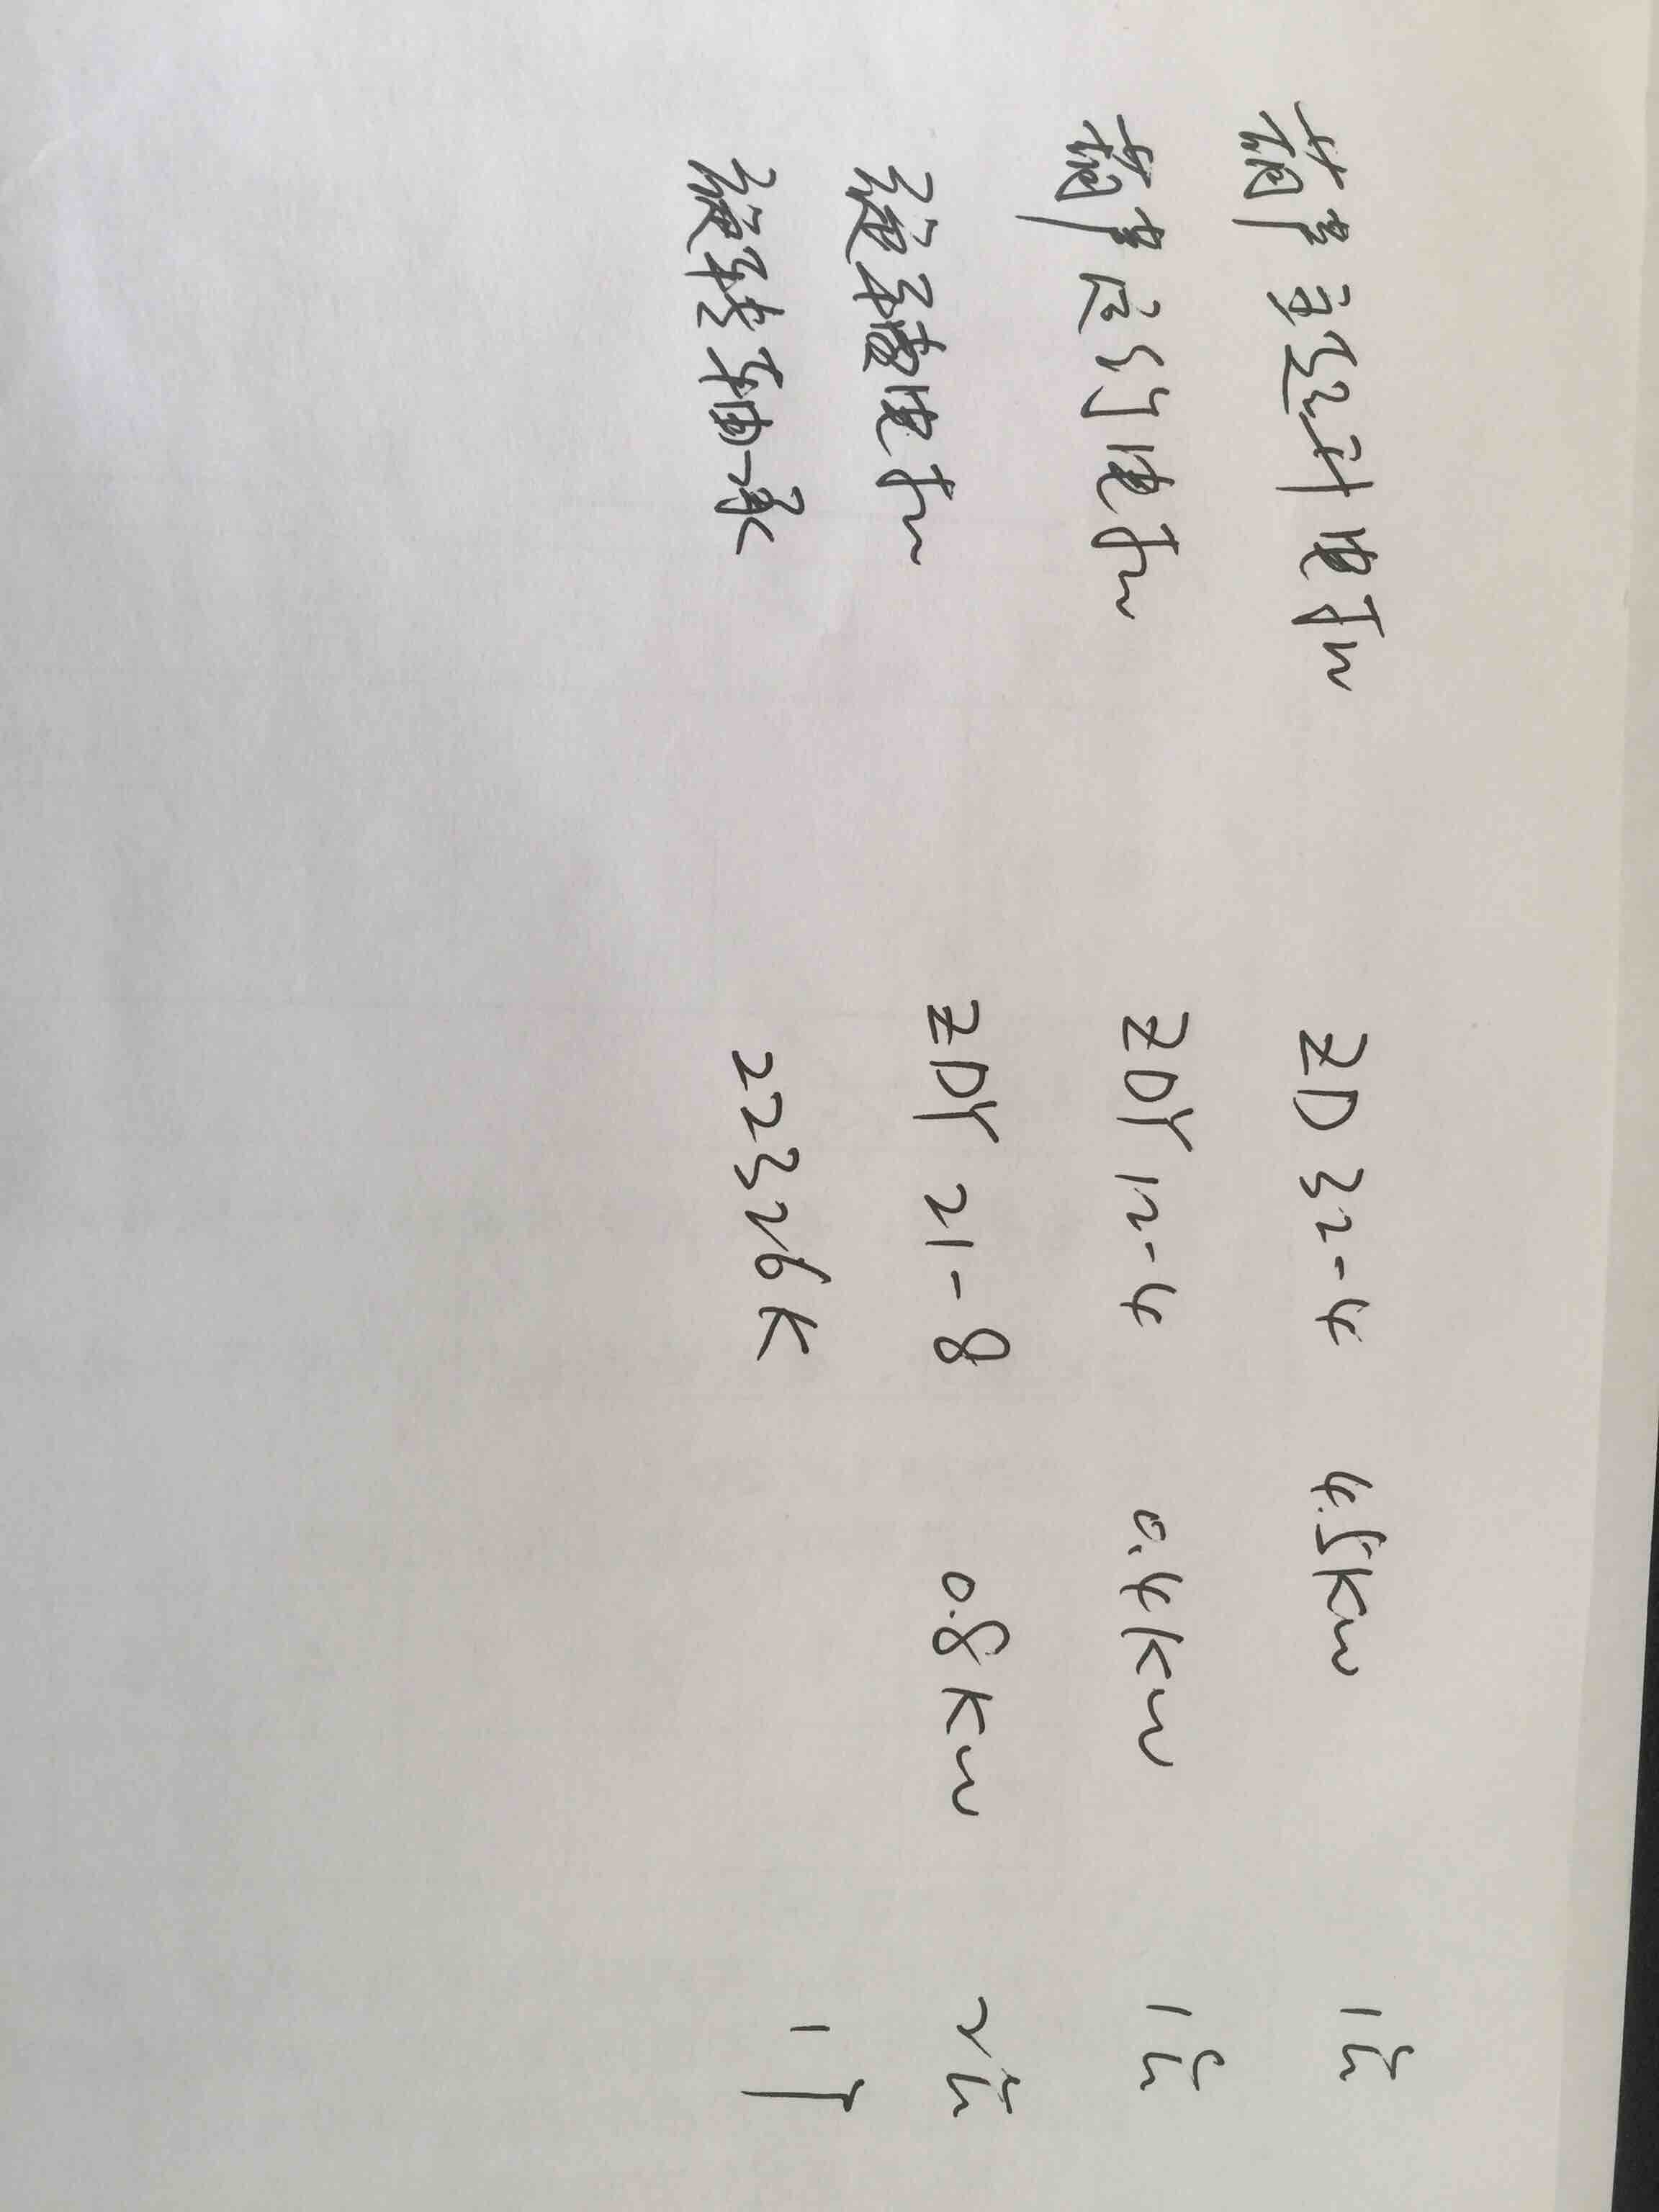 葫芦主起升电机 ZD32-4 4.5KW 1台
葫芦运行电机 ZDY12-4 0.4KW 1台
电机 ZDY21-8 0.8KW 2台
旋转轴承 22326K 1个